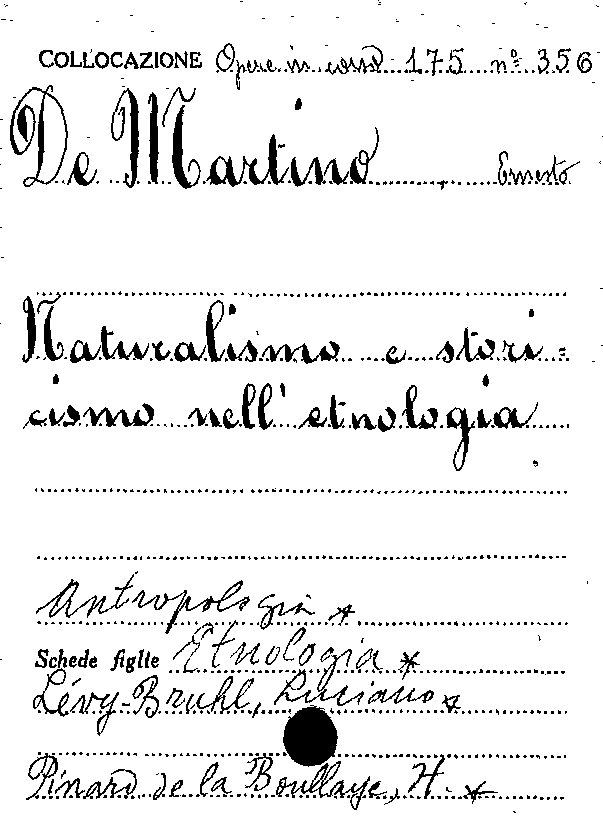 COLLOCAZIONE Opere in corso 175 nº 356
De Martino, Ernesto
Naturalismo e stori=
cismo nell'etnologia
.
Antropologia *
Schede figlie Etnologia *
Lévy-Bruhl, Luciano *
Pinard de la Boullaye, H. *